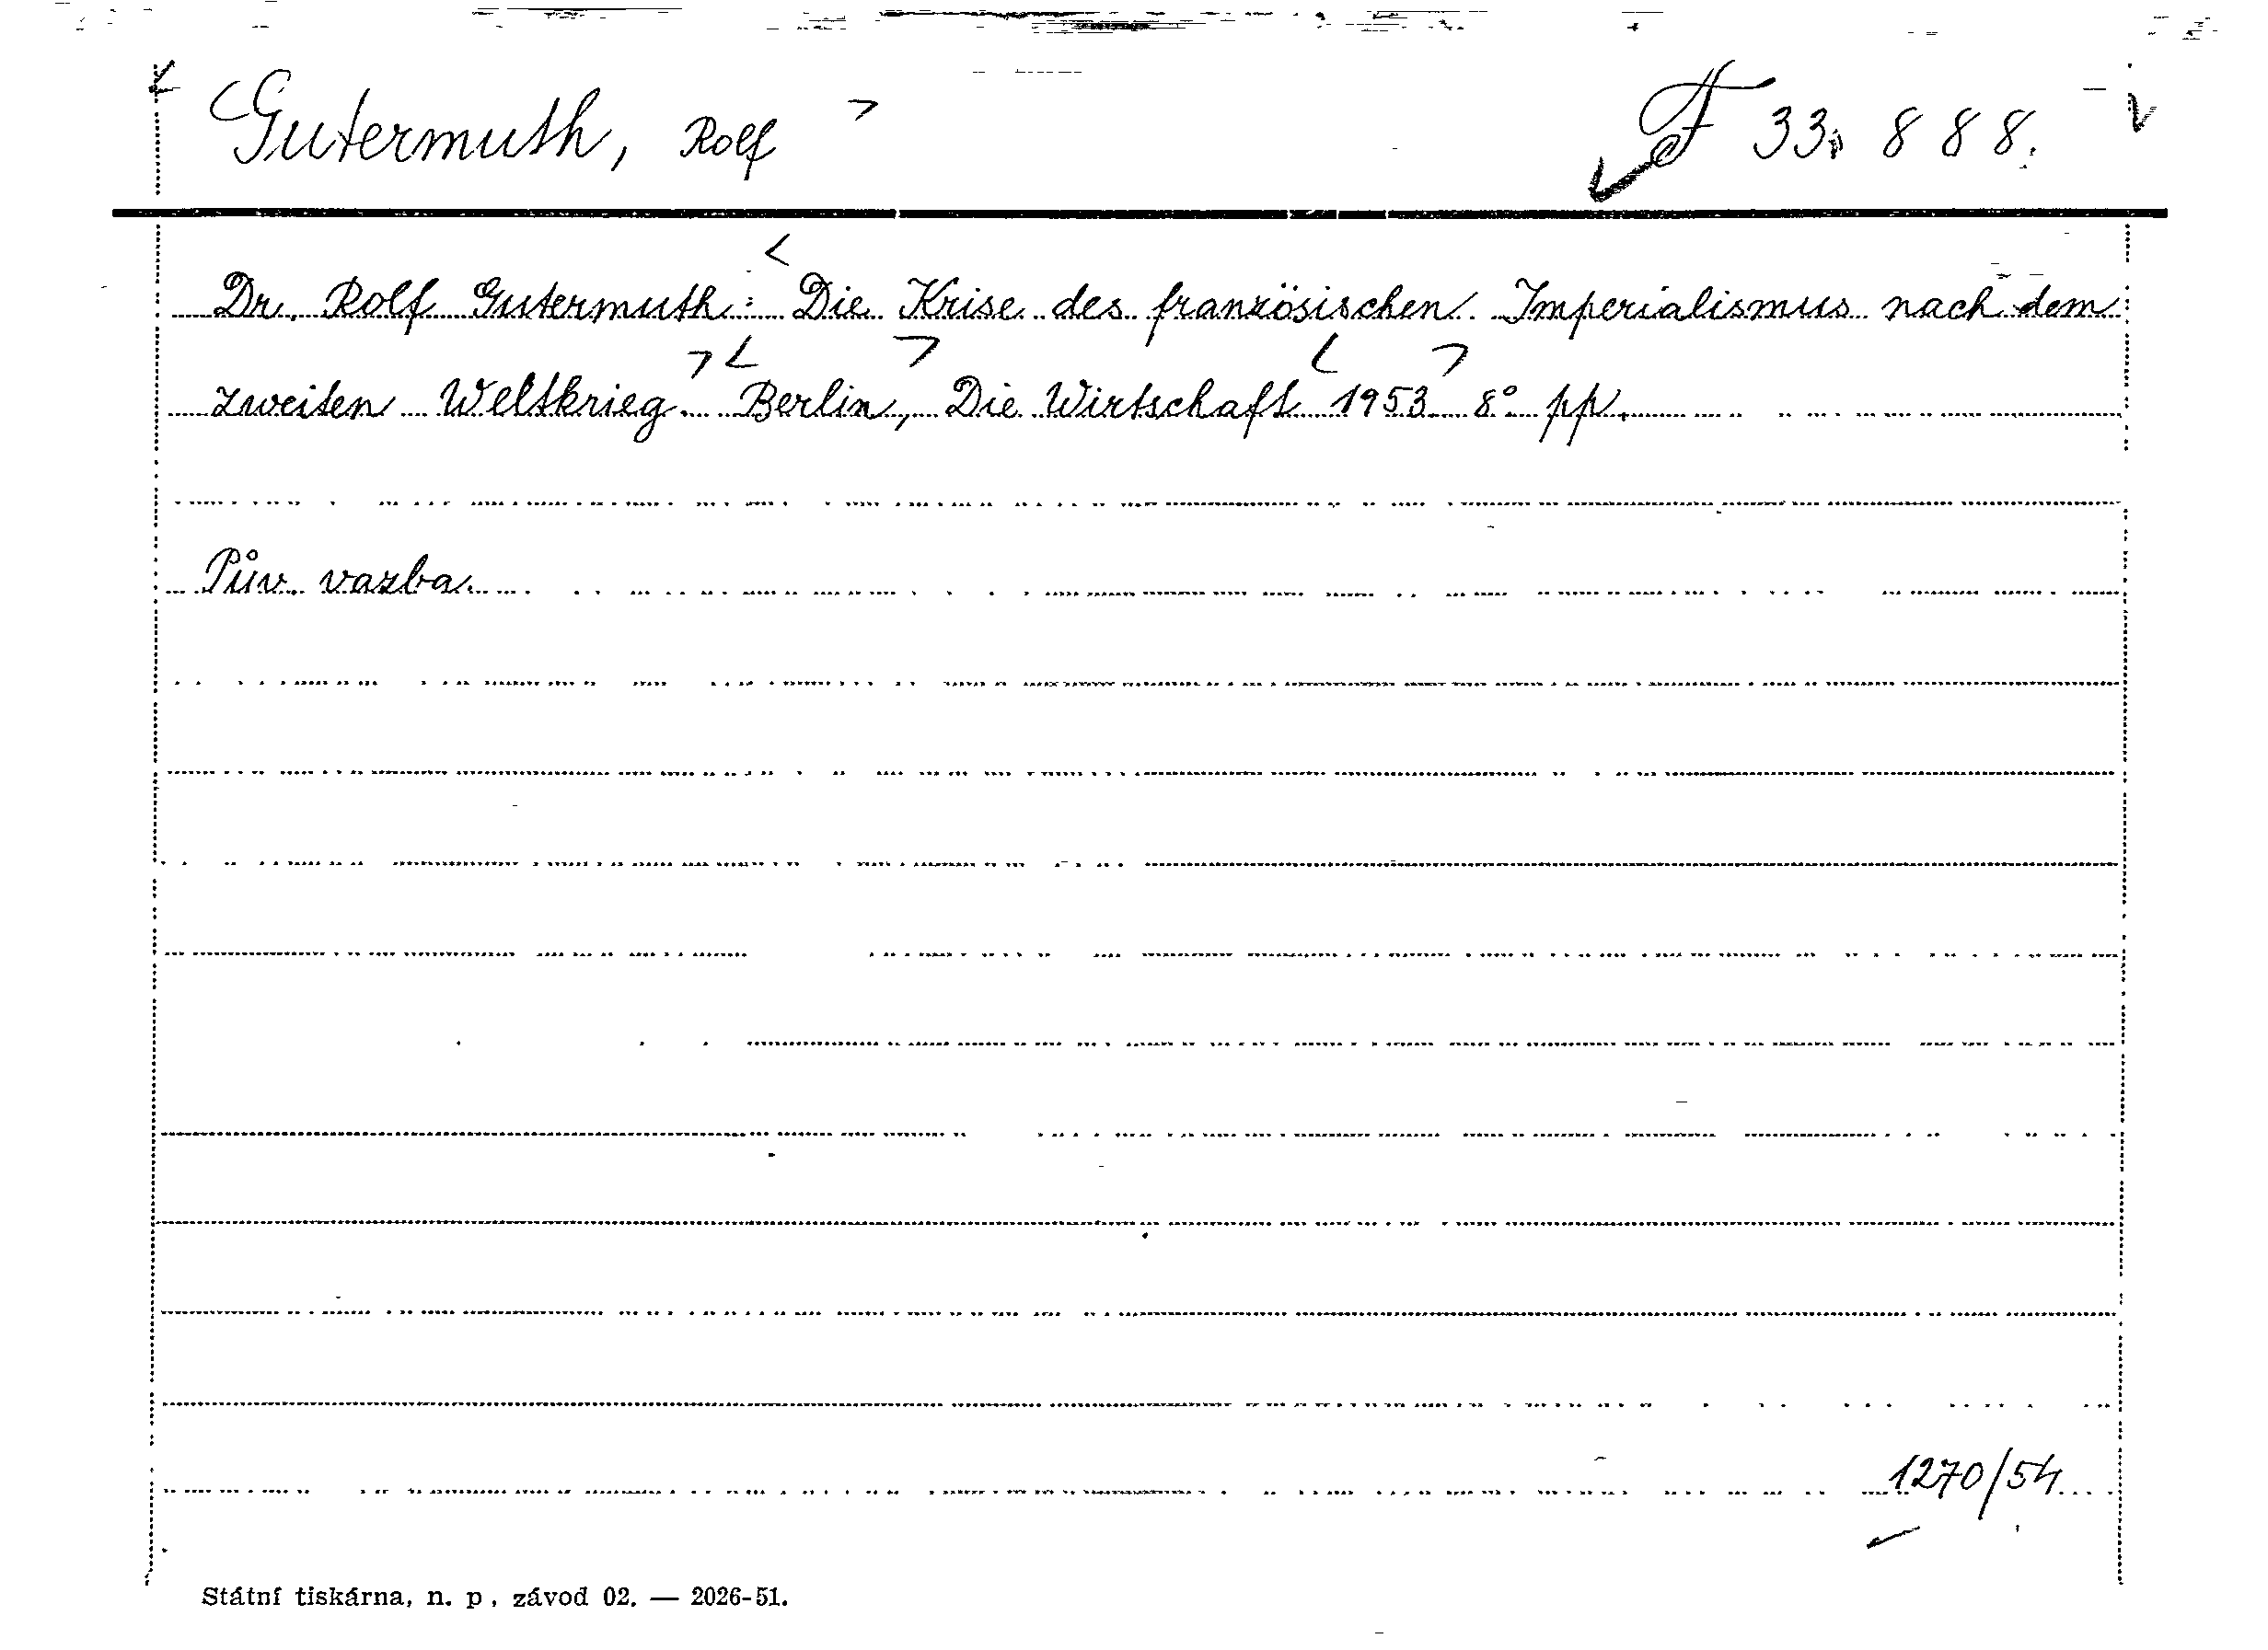 Gutermuth, Rolf F 33.888.
Dr. Rolf Gutermuth: Die Krise des französischen Imperialismus nach dem
zweiten Weltkrieg. Berlin, Die Wirtschaft 1953 8° pp.
Pův. vazba.
1270/54
Státní tiskárna, n. p., závod 02. — 2026-51.